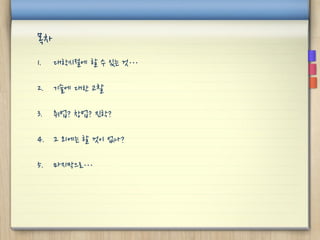 목차
1. 대학시절에 할 수 있는 것...
2. 기술에 대한 고찰
3. 취업? 창업? 진학?
4. 그 외에는 할 것이 없나?
5. 마지막으로...